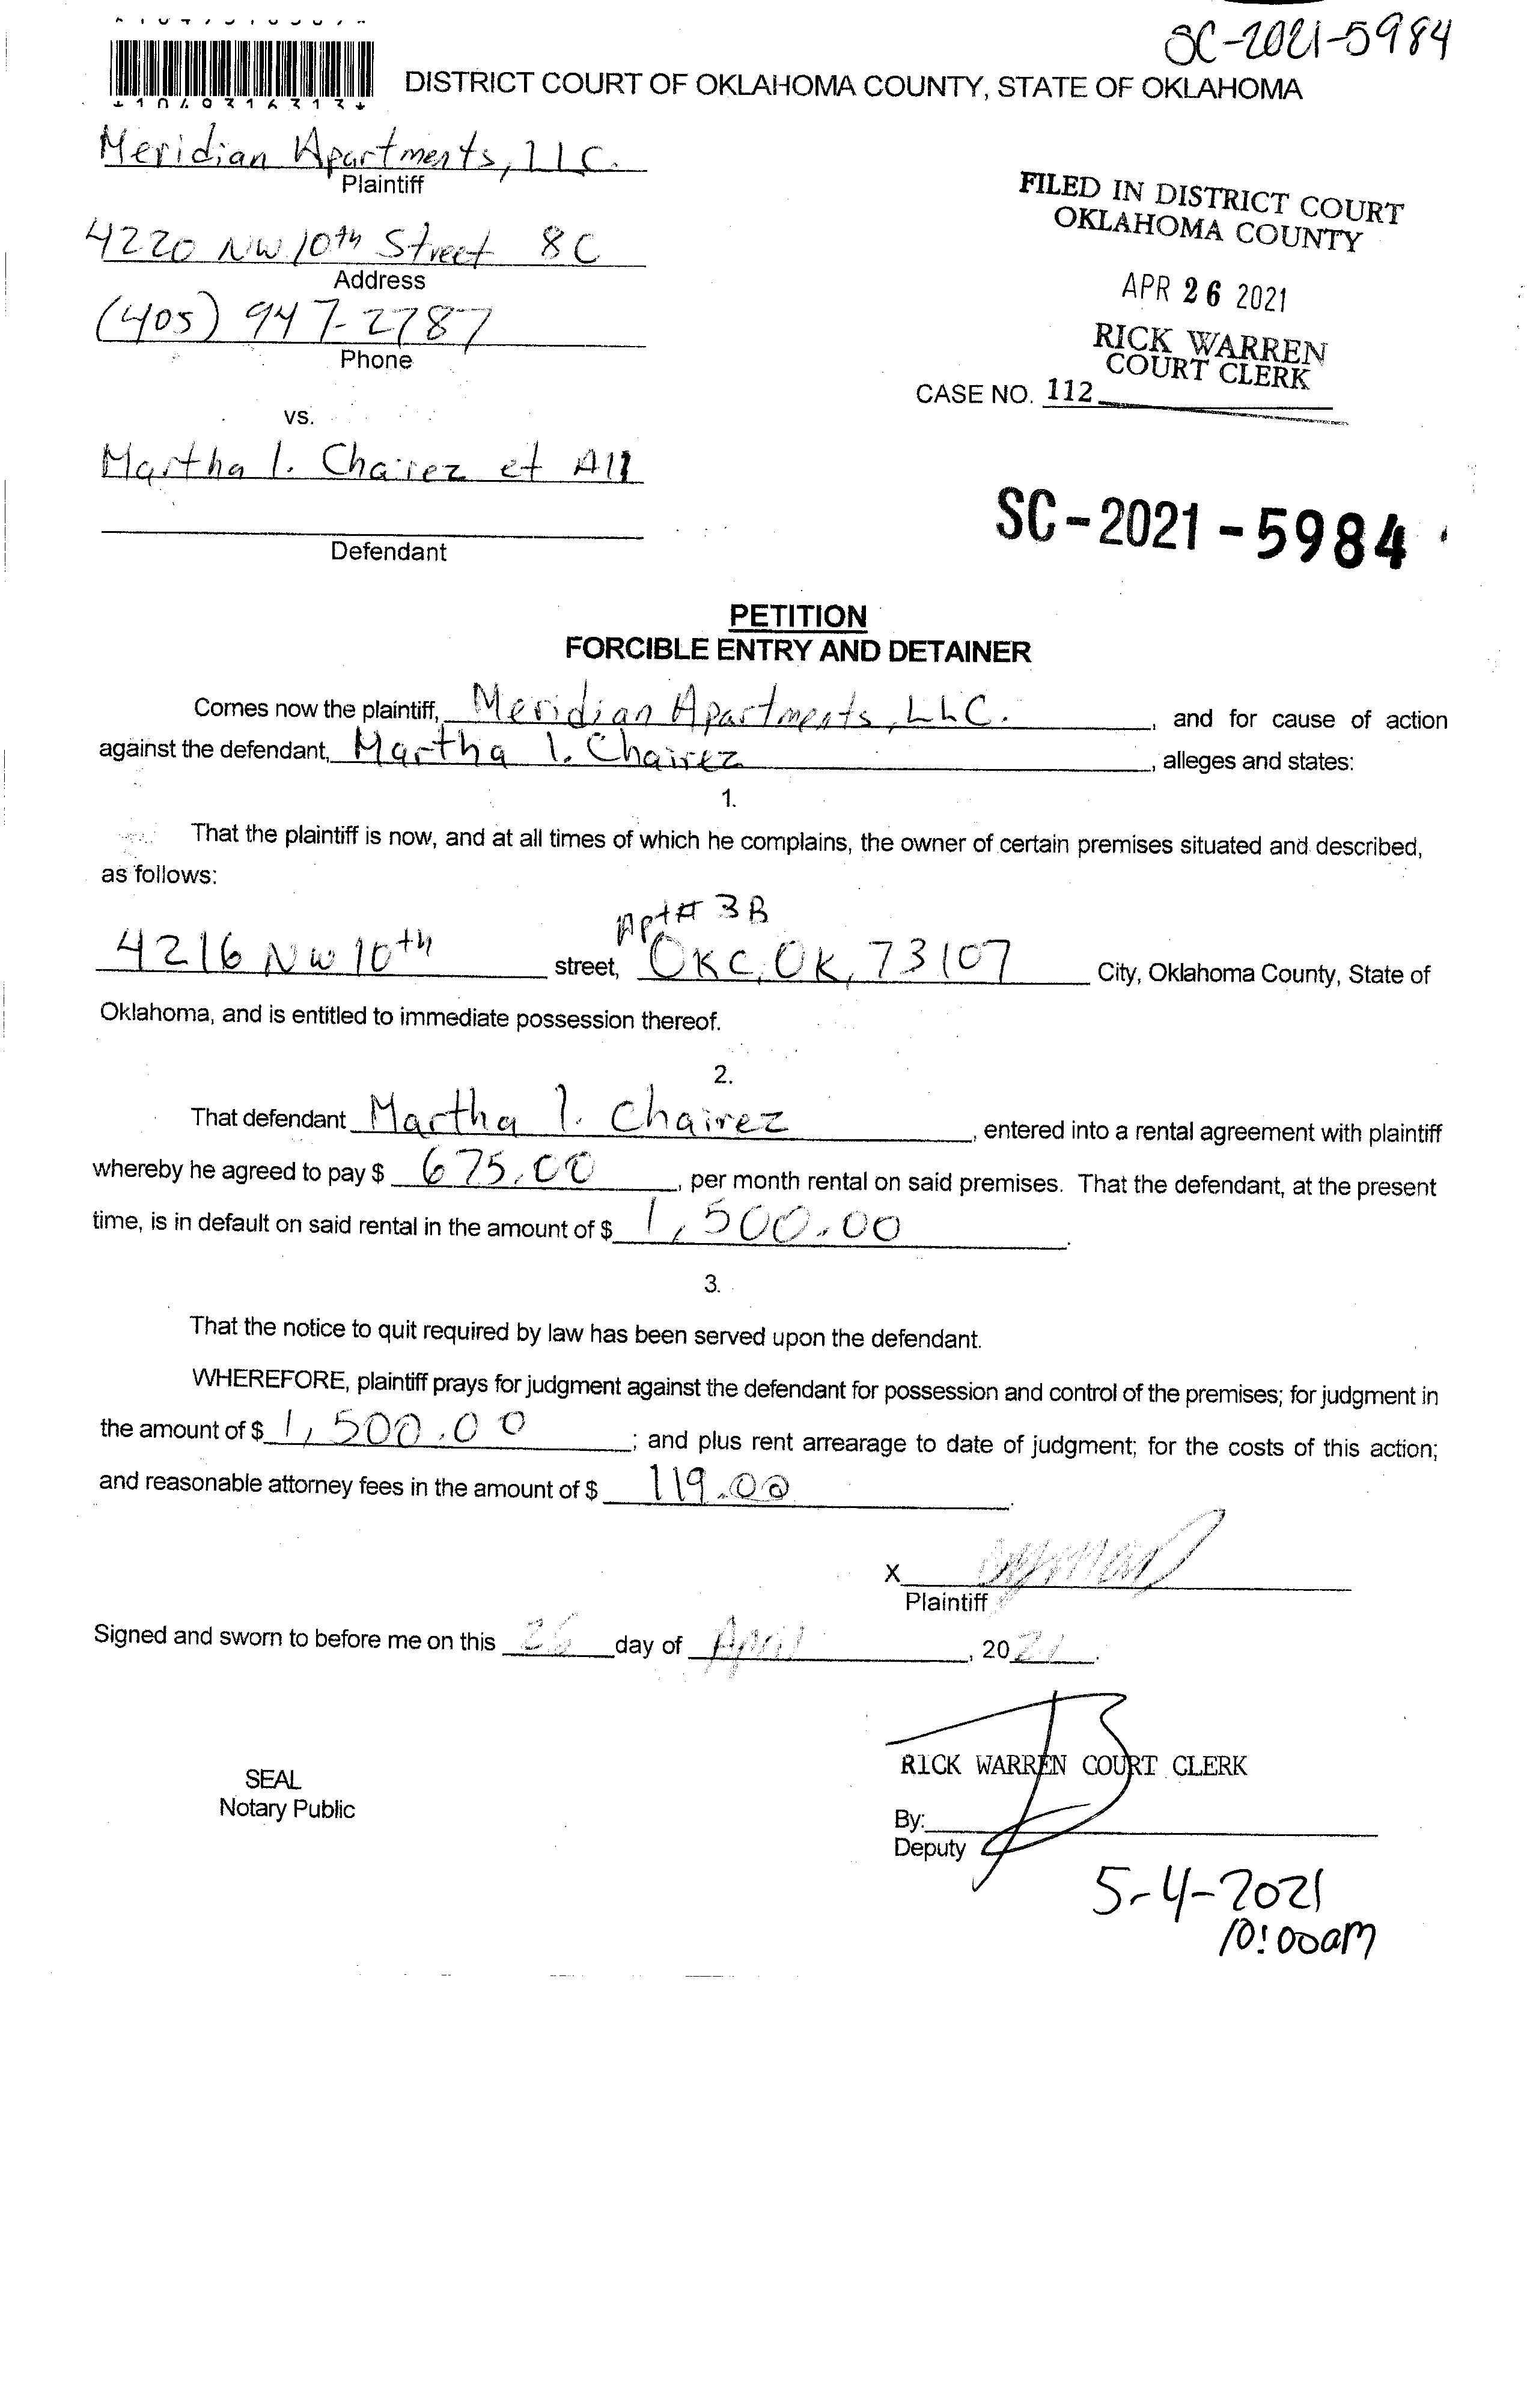 SC-2021-5984
DISTRICT COURT OF OKLAHOMA COUNTY, STATE OF OKLAHOMA
Meridian Apartments, LLC.
Plaintiff
FILED IN DISTRICT COURT
OKLAHOMA COUNTY
4220 NW 10th Street 8C
Address
APR 26 2021
(405) 947-2787
Phone
RICK WARREN
COURT CLERK
CASE NO. 112
vs.
Martha I. Chairez et All
Defendant
SC-2021-5984
PETITION
FORCIBLE ENTRY AND DETAINER
Comes now the plaintiff, Meridian Apartments, LLC. , and for cause of action
against the defendant, Martha I. Chairez , alleges and states:
1.
That the plaintiff is now, and at all times of which he complains, the owner of certain premises situated and described,
as follows:
Apt# 3B
4216 NW 10th street, OKC, OK, 73107 City, Oklahoma County, State of
Oklahoma, and is entitled to immediate possession thereof.
2.
That defendant Martha I. Chairez , entered into a rental agreement with plaintiff
whereby he agreed to pay $ 675.00 , per month rental on said premises. That the defendant, at the present
time, is in default on said rental in the amount of $ 1,500.00 .
3.
That the notice to quit required by law has been served upon the defendant.
WHEREFORE, plaintiff prays for judgment against the defendant for possession and control of the premises; for judgment in
the amount of $ 1,500.00 ; and plus rent arrearage to date of judgment; for the costs of this action;
and reasonable attorney fees in the amount of $ 119.00 .
X
Plaintiff
Signed and sworn to before me on this 26 day of April , 2021.
RICK WARREN COURT CLERK
SEAL
Notary Public
By:
Deputy
5-4-2021
10:00am